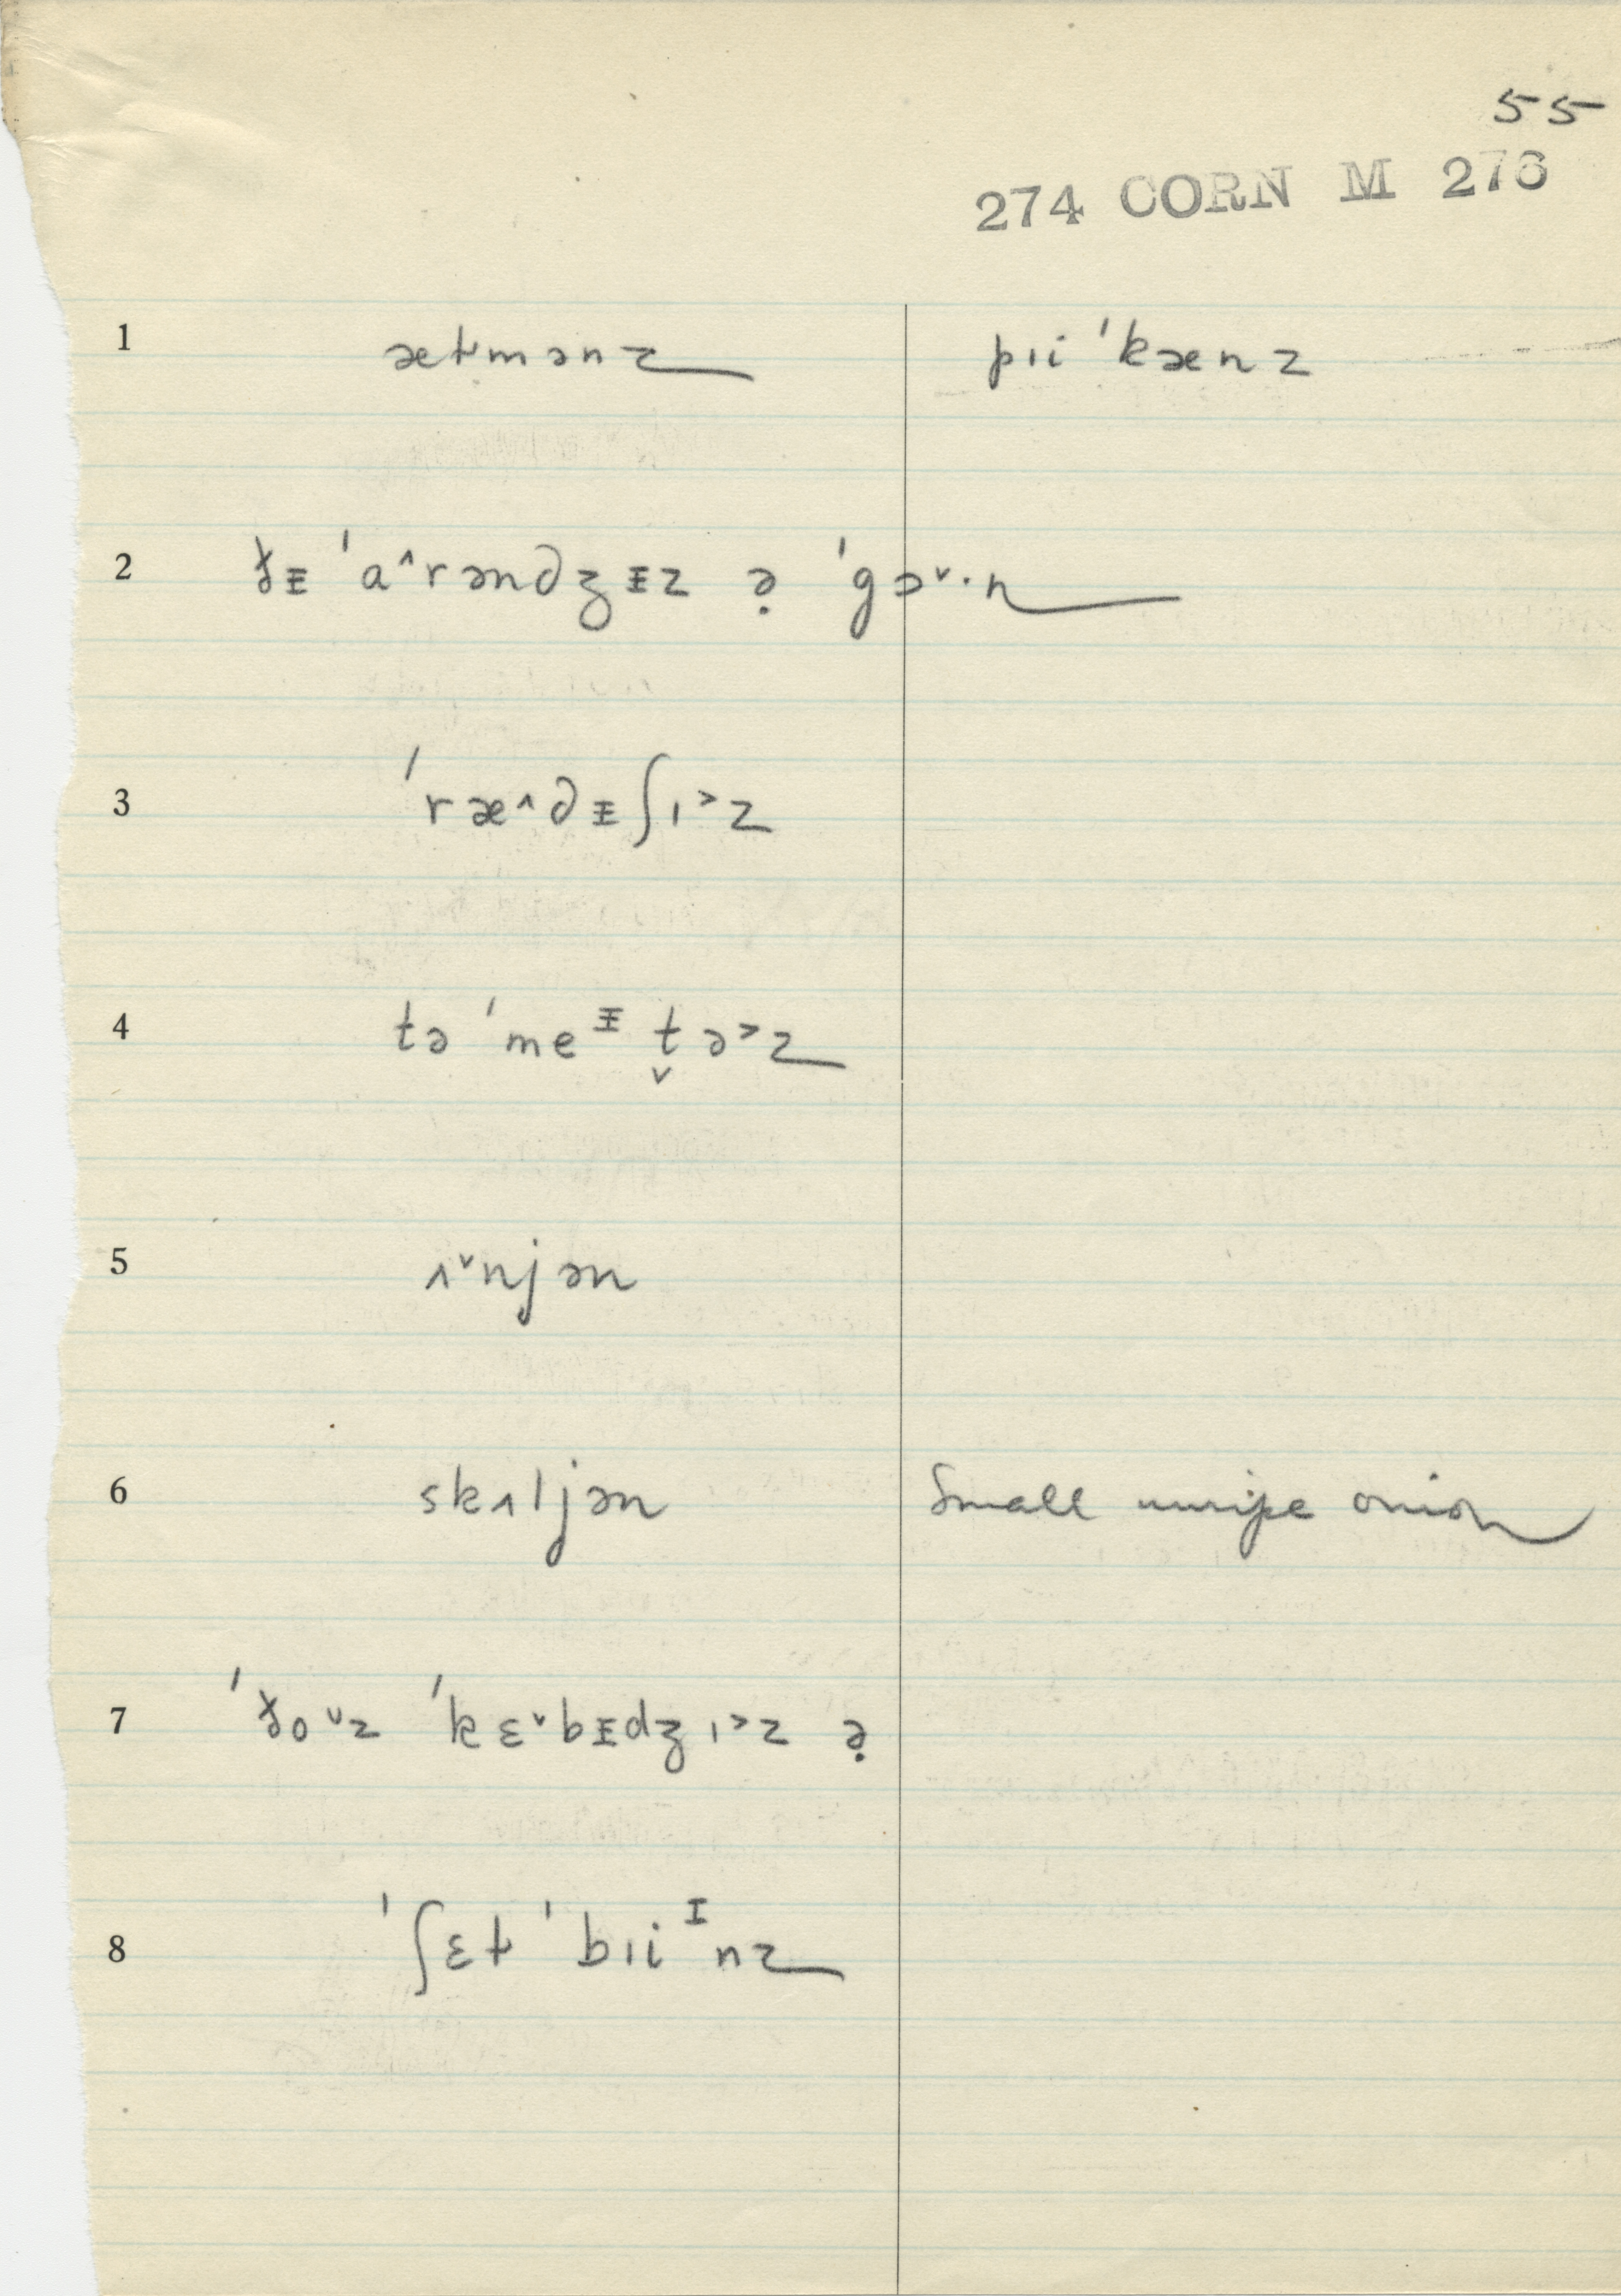 55
274 CORN M 276
1 æɫmənz pɪi ˈkænz
2 ðᵻ ˈa˄rəndʒᵻz ə̣ ˈgɔ˅·n
3 ˈræ˄dᵻʃɪ˃z
4 tə ˈmeᵻ t̬ə˃z
5 ʌ˅njən
6 skʌljən Small unripe onion
7 ˈðoᴜz ˈkɛ˅bᵻdʒɪ˃z ə̣
8 ˈʃɛɫ ˈbɪiᶦnz